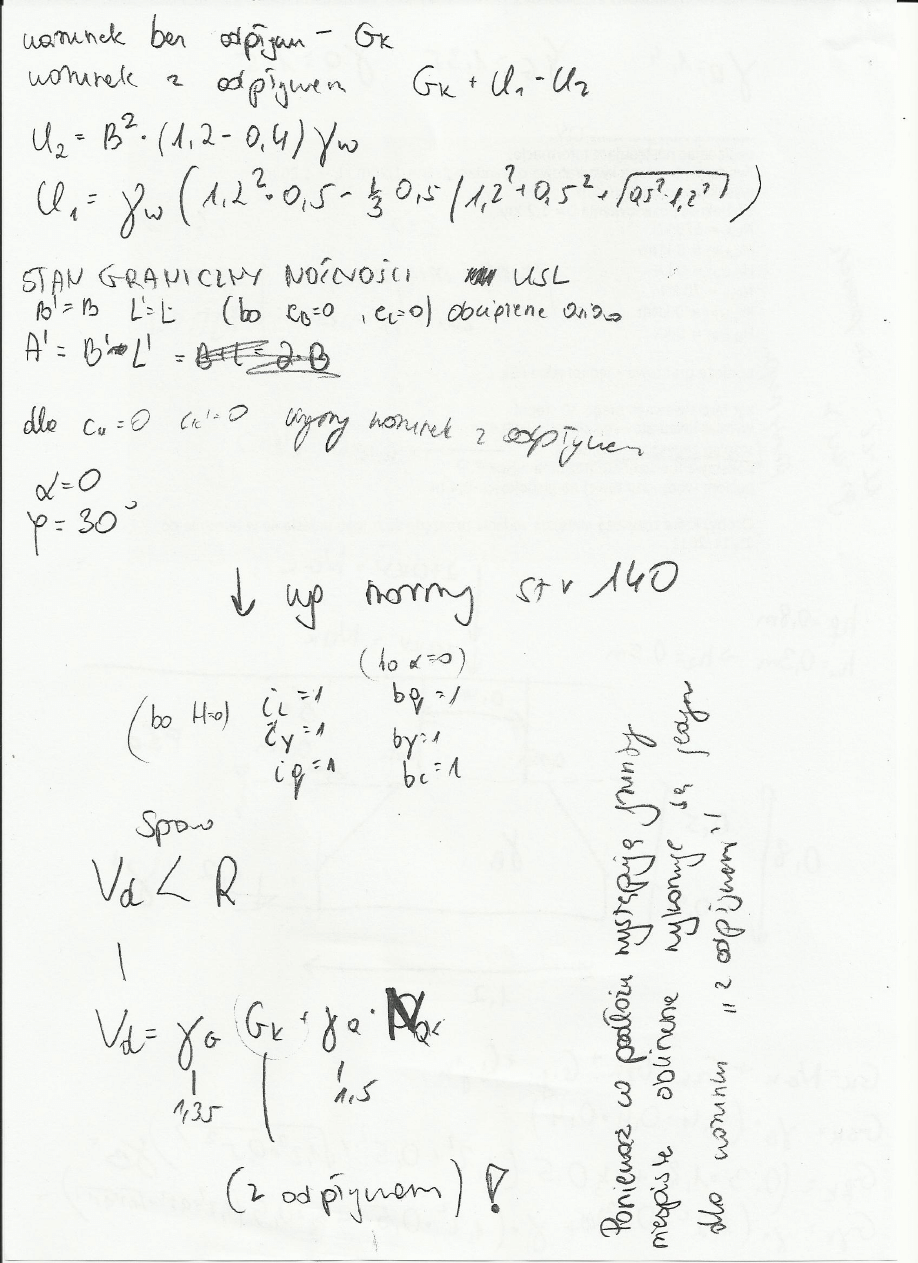 warunek bez odpływu – Gk
warunek z odpływem Gk + U₁ - U₂
U₂ = B² · (1,2 - 0,4) γw
U₁ = γw (1,2² · 0,5 - 1/3 0,5 (1,2² + 0,5² + √(0,5² · 1,2²))
STAN GRANICZNY NOŚNOŚCI USL
B' = B L' = L (bo eB=0 , eL=0) obciążenie
A' = B' · L' =
dla cu=0 c'=0 warunek z odpływem
α=0
φ=30°
↓ wg normy str 140
(bo α=0)
(bo H=0) ic=1 bq=1
iγ=1 bγ=1
iq=1 bc=1
Vd < R
Vd = γG Gk + γQ · NQk
1,35 1,5
(z odpływem) !
Ponieważ w podłożu występują grunty
niespoiste obliczenia wykonuje się jedynie
dla warunku "z odpływem"